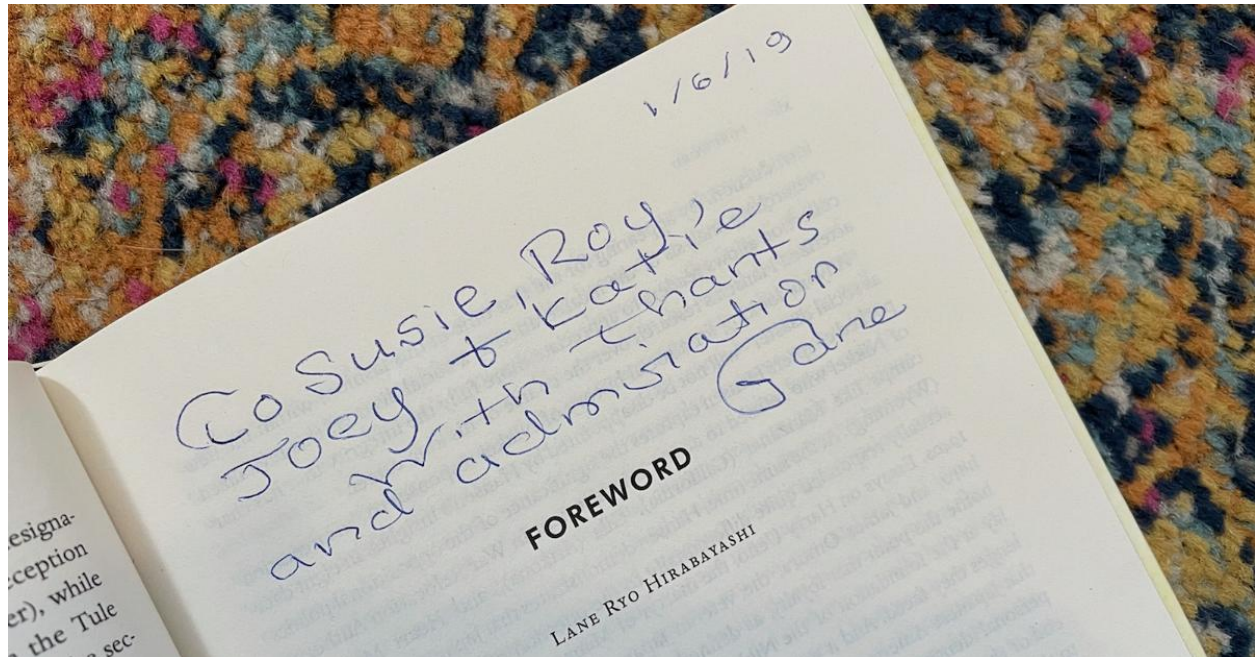 1/6/19
To Susie, Roy,
Joey + Katie
With thanks
and admiration
Lane
FOREWORD
LANE RYO HIRABAYASHI
esigna-
ception
er), while
the Tule
sec-